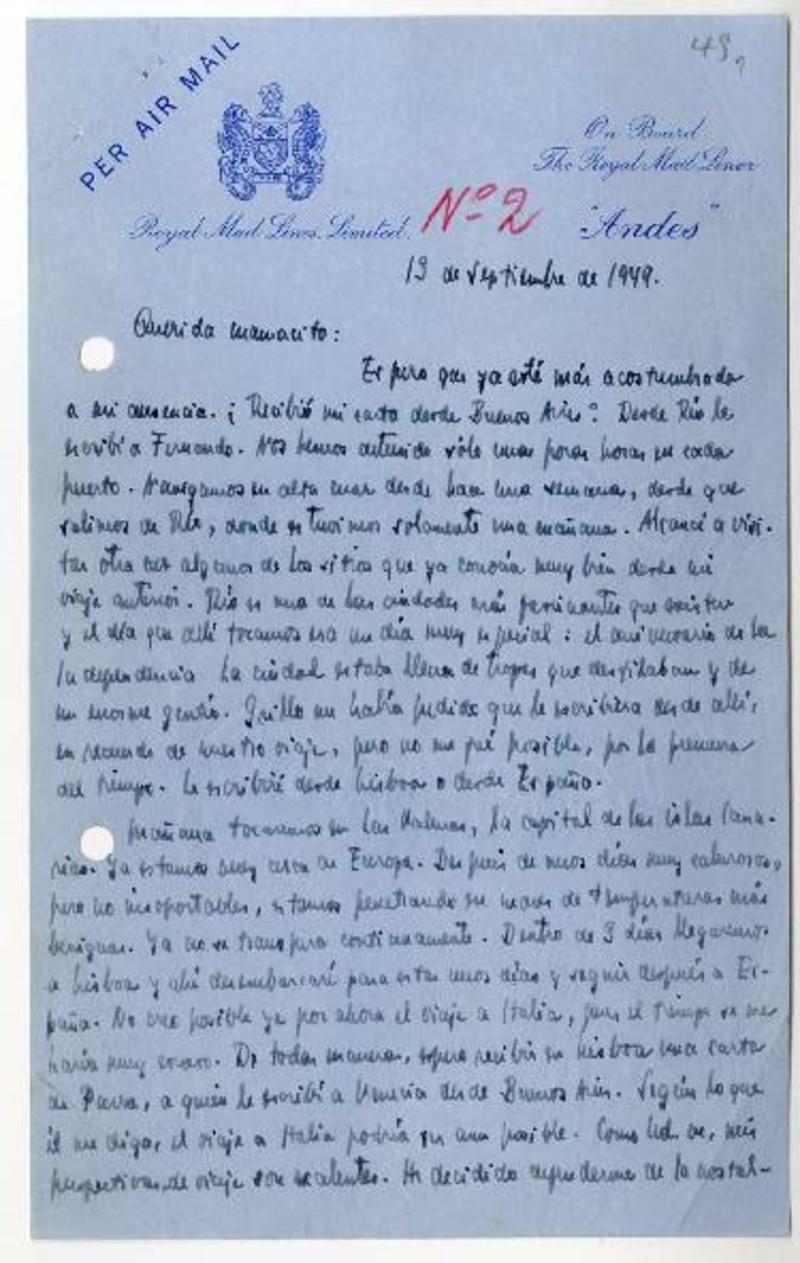 49,
PER AIR MAIL
On Board
The Royal Mail Liner
"Andes"
Royal Mail Lines, Limited.
Nº 2
13 de septiembre de 1949.
Querida mamacita:
Espero que ya esté más acostumbrada
a mi ausencia. ¿Recibió mi carta desde Buenos Aires? Desde Río le
escribí a Fernando. Nos hemos detenido sólo unas pocas horas en cada
puerto. Navegamos en alta mar desde hace una semana, desde que
salimos de Río, donde estuvimos solamente una mañana. Alcancé a visi-
tar otra vez algunos de los sitios que ya conocía muy bien desde mi
viaje anterior. Río es una de las ciudades más fascinantes que existen
y el día que allí tocamos era un día muy especial: el aniversario de la
Independencia. La ciudad estaba llena de tropas que desfilaban y de
un enorme gentío. Guillo me había pedido que le escribiera desde allí,
en recuerdo de nuestro viaje, pero no me fué posible, por la premura
del tiempo. Le escribiré desde Lisboa o desde España.
Mañana tocaremos en Las Palmas, la capital de las islas Cana-
rias. Ya estamos muy cerca de Europa. Después de unos días muy calurosos,
pero no insoportables, estamos penetrando en mares de temperaturas más
benignas. Ya no se transpira continuamente. Dentro de 3 días llegaremos
a Lisboa y ahí desembarcaré para estar unos días y seguir después a Es-
paña. No creo posible ya por ahora el viaje a Italia, pues el tiempo se me
haría muy escaso. De todas maneras, espero recibir en Lisboa una carta
de Parra, a quien le escribí a Venecia desde Buenos Aires. Según lo que
él me diga, el viaje a Italia podría ser aun posible. Como Ud. ve, mis
perspectivas de viaje son excelentes. He decidido defenderme de la nostal-